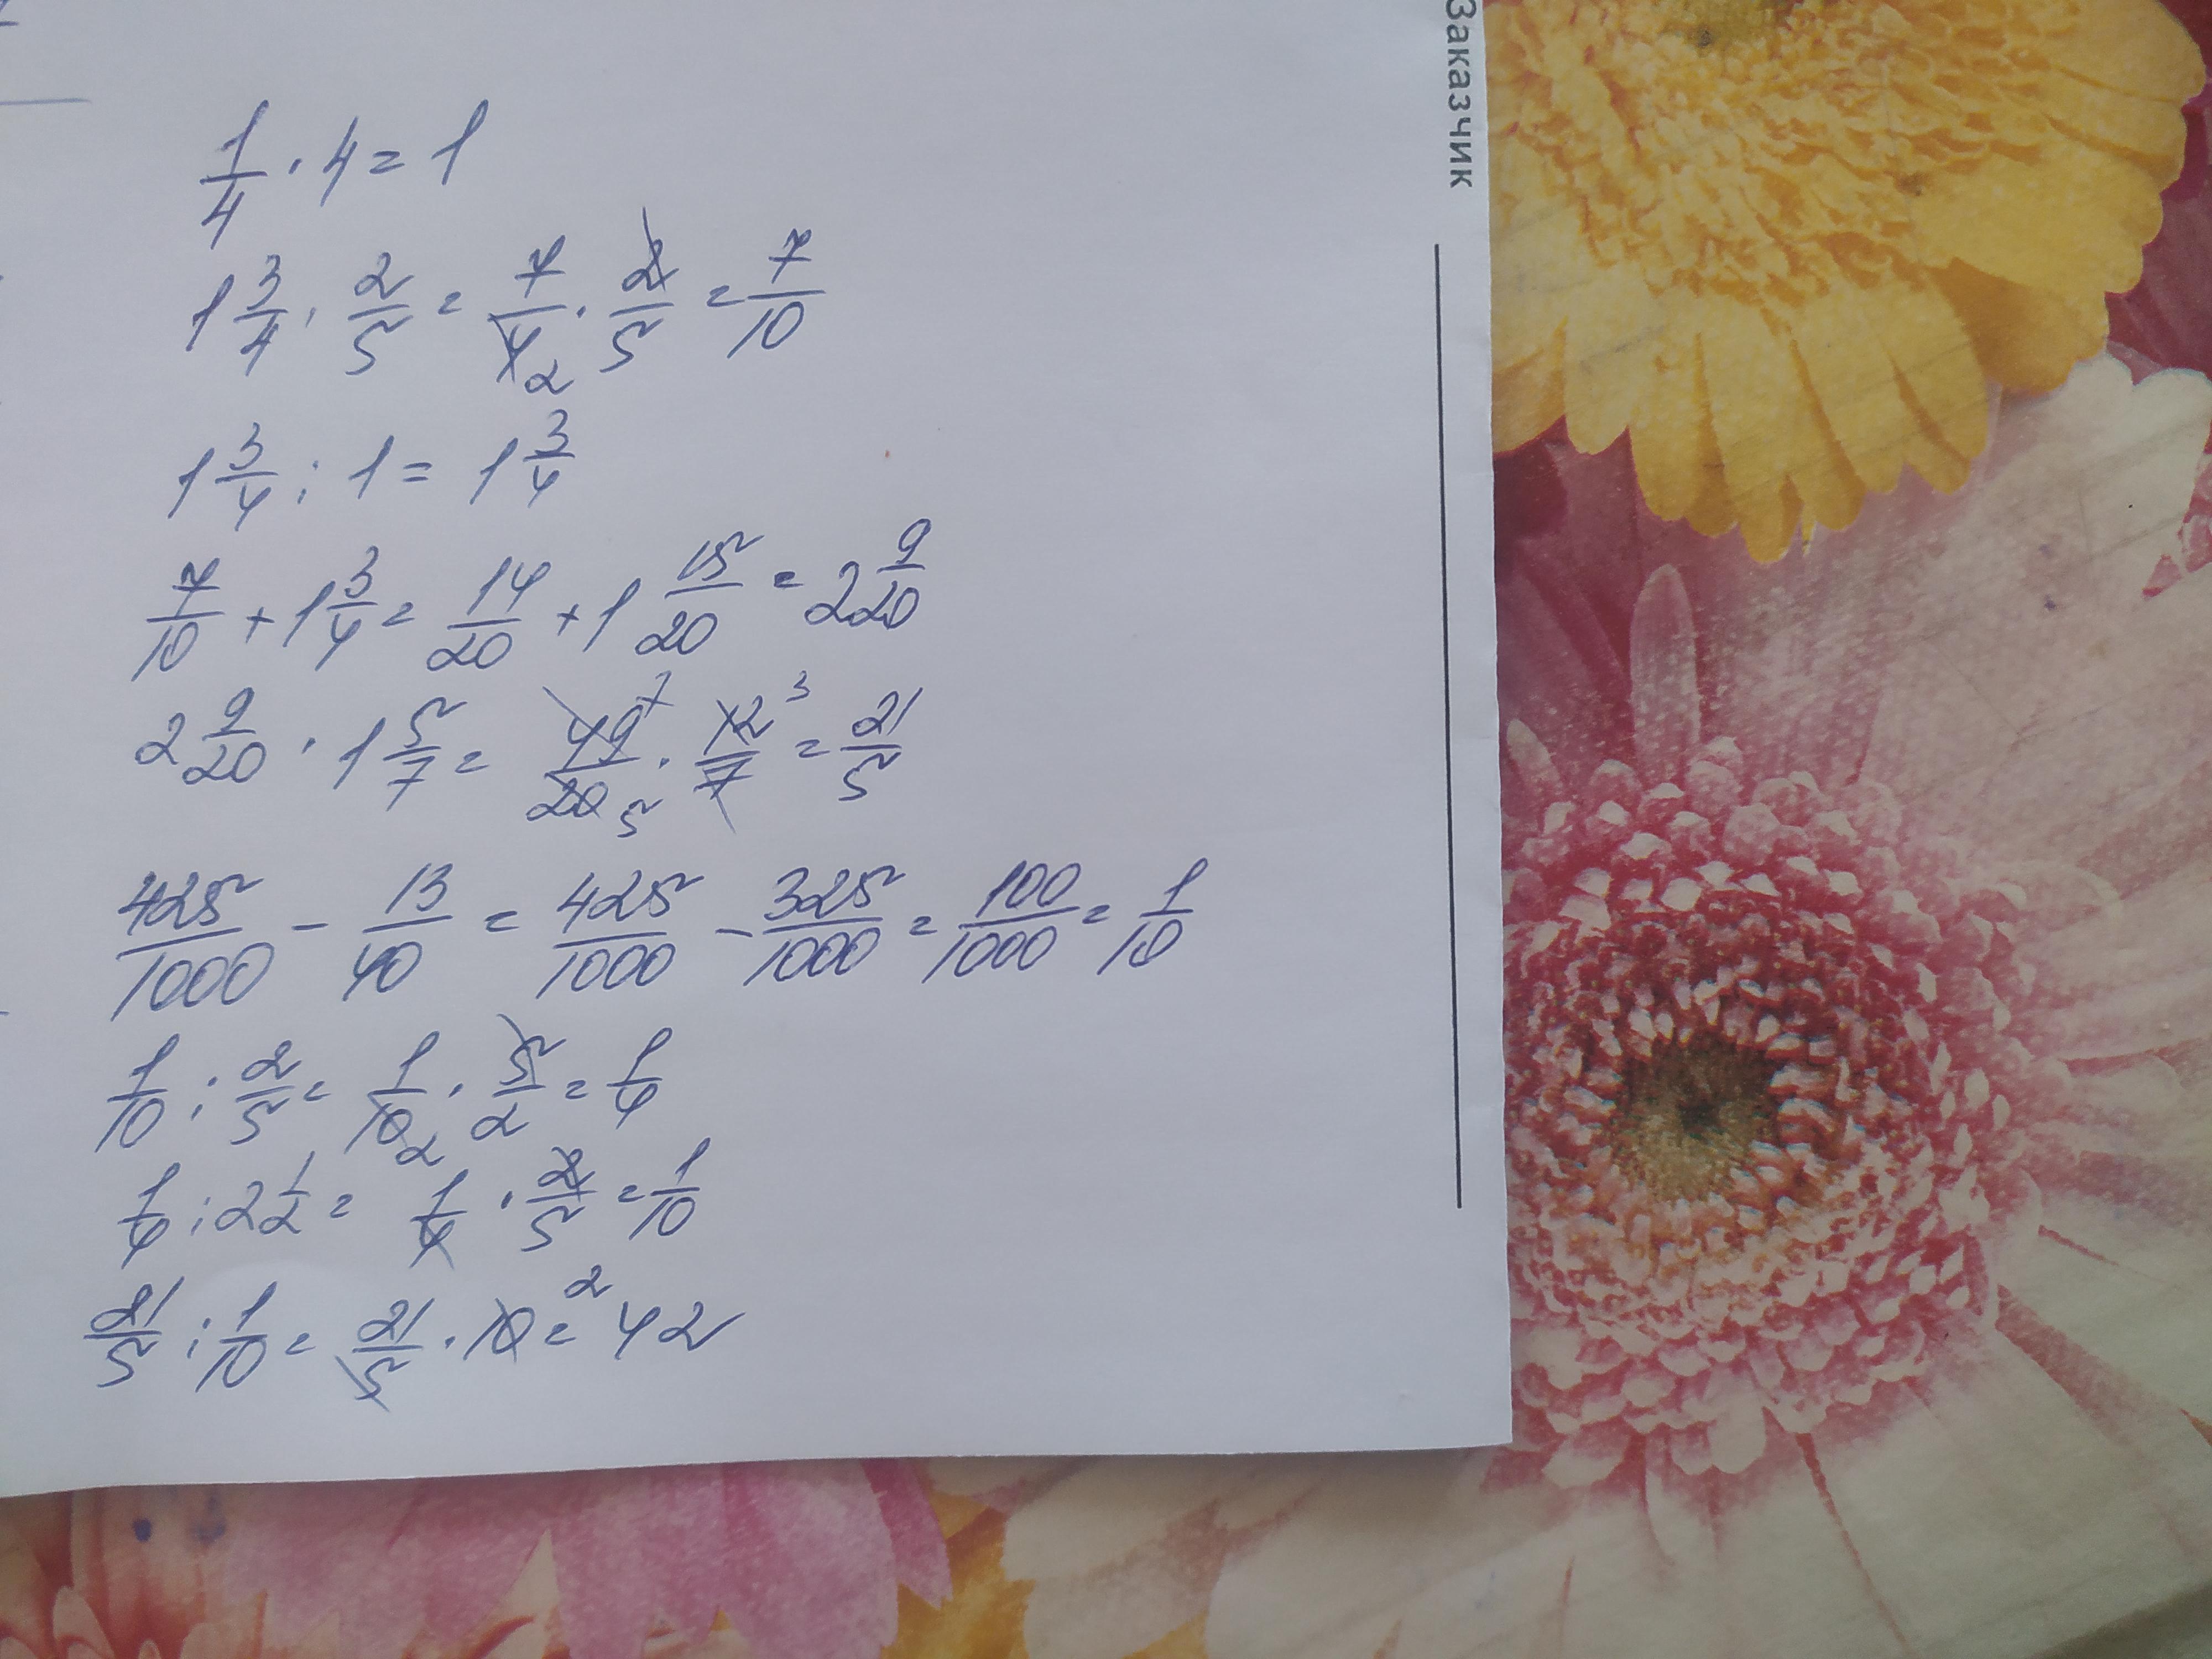 1/4 · 4 = 1
1 3/4 · 2/5 = 7/4 2 · 2/5 = 7/10
1 3/4 : 1 = 1 3/4
7/10 + 1 3/4 = 14/20 + 1 15/20 = 2 9/20
2 9/20 · 1 5/7 = 49 7/20 5 · 12 3/7 = 21/5
425/1000 - 13/40 = 425/1000 - 325/1000 = 100/1000 = 1/10
1/10 : 2/5 = 1/10 2 · 5/2 = 1/4
1/4 : 2 1/2 = 1/4 · 2/5 = 1/10
21/5 : 1/10 = 21/5 · 10 2 = 42
Заказчик